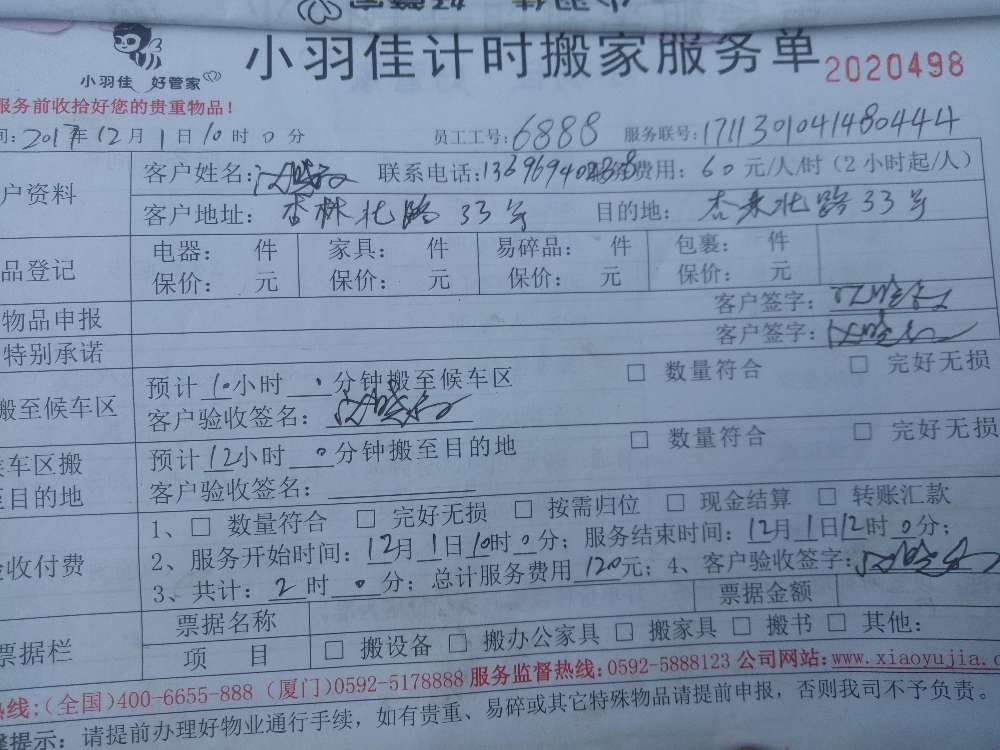 小羽佳 好管家
小羽佳计时搬家服务单 2020498
服务前收拾好您的贵重物品！
间：2017年12月1日10时0分 员工工号：6888 服务联号：171130104148044
户资料 客户姓名： 联系电话： 费用：60元/人/时（2小时起/人）
客户地址：杏林北路33号 目的地：杏东北路33号
品登记 电器： 件 家具： 件 易碎品： 件 包裹： 件
保价： 元 保价： 元 保价： 元 保价： 元
物品申报 客户签字：
特别承诺 客户签字：
搬至候车区 预计10小时0分钟搬至候车区 □ 数量符合 □ 完好无损
客户验收签名：
车区搬 预计12小时0分钟搬至目的地 □ 数量符合 □ 完好无损
至目的地 客户验收签名：
验收付费 1、□ 数量符合 □ 完好无损 □ 按需归位 □ 现金结算 □ 转账汇款
2、服务开始时间：12月1日10时0分；服务结束时间：12月1日12时0分；
3、共计：2时0分；总计服务费用120元；4、客户验收签字：
票据栏 票据名称 票据金额
项 目 □ 搬设备 □ 搬办公家具 □ 搬家具 □ 搬书 □ 其他：
热线：（全国）400-6655-888（厦门）0592-5178888 服务监督热线：0592-5888123 公司网站：www.xiaoyujia.c
提示：请提前办理好物业通行手续，如有贵重、易碎或其它特殊物品请提前申报，否则我司不予负责。